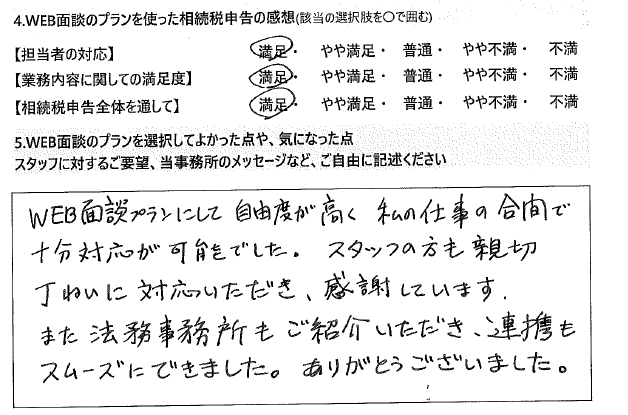 4.WEB面談のプランを使った相続税申告の感想(該当の選択肢を〇で囲む)
【担当者の対応】 満足・ やや満足・ 普通・ やや不満・ 不満
【業務内容に関しての満足度】 満足・ やや満足・ 普通・ やや不満・ 不満
【相続税申告全体を通して】 満足・ やや満足・ 普通・ やや不満・ 不満
5.WEB面談のプランを選択してよかった点や、気になった点
スタッフに対するご要望、当事務所のメッセージなど、ご自由に記述ください
WEB面談プランにして 自由度が高く 私の仕事の合間で
十分対応が可能でした。 スタッフの方も親切
丁ねいに対応いただき、感謝しています.
また法務事務所もご紹介いただき、連携も
スムーズにできました。ありがとうございました。